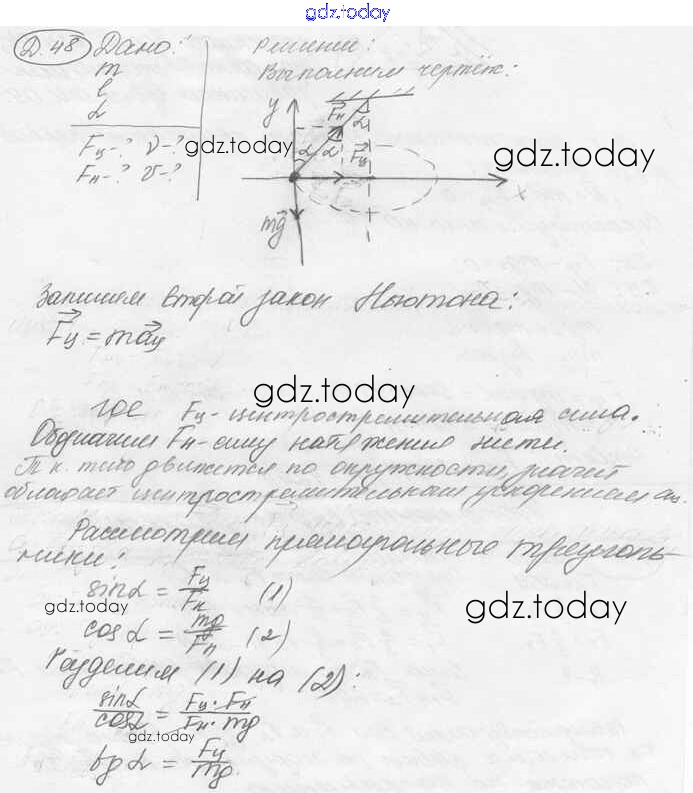 gdz.today
Д.48 Дано: Решение:
m Выполним чертёж:
l
α
Fц-? ν-?
Fн-? υ-?
y Fн α
α α Fц
gdz.today
gdz.today
x
mg
Запишем второй закон Ньютона:
Fц = maц
gdz.today
где Fц - центростремительная сила.
Обозначим Fн - силу натяжения нити.
Т.к. тело движется по окружности, значит
обладает центростремительным ускорением aц.
Рассмотрим прямоугольные треуголь-
ники:
sinα = Fц/Fн (1)
gdz.today
gdz.today
cosα = mg/Fн (2)
Разделим (1) на (2):
sinα/cosα = Fц·Fн/Fн·mg
gdz.today
tgα = Fц/mg